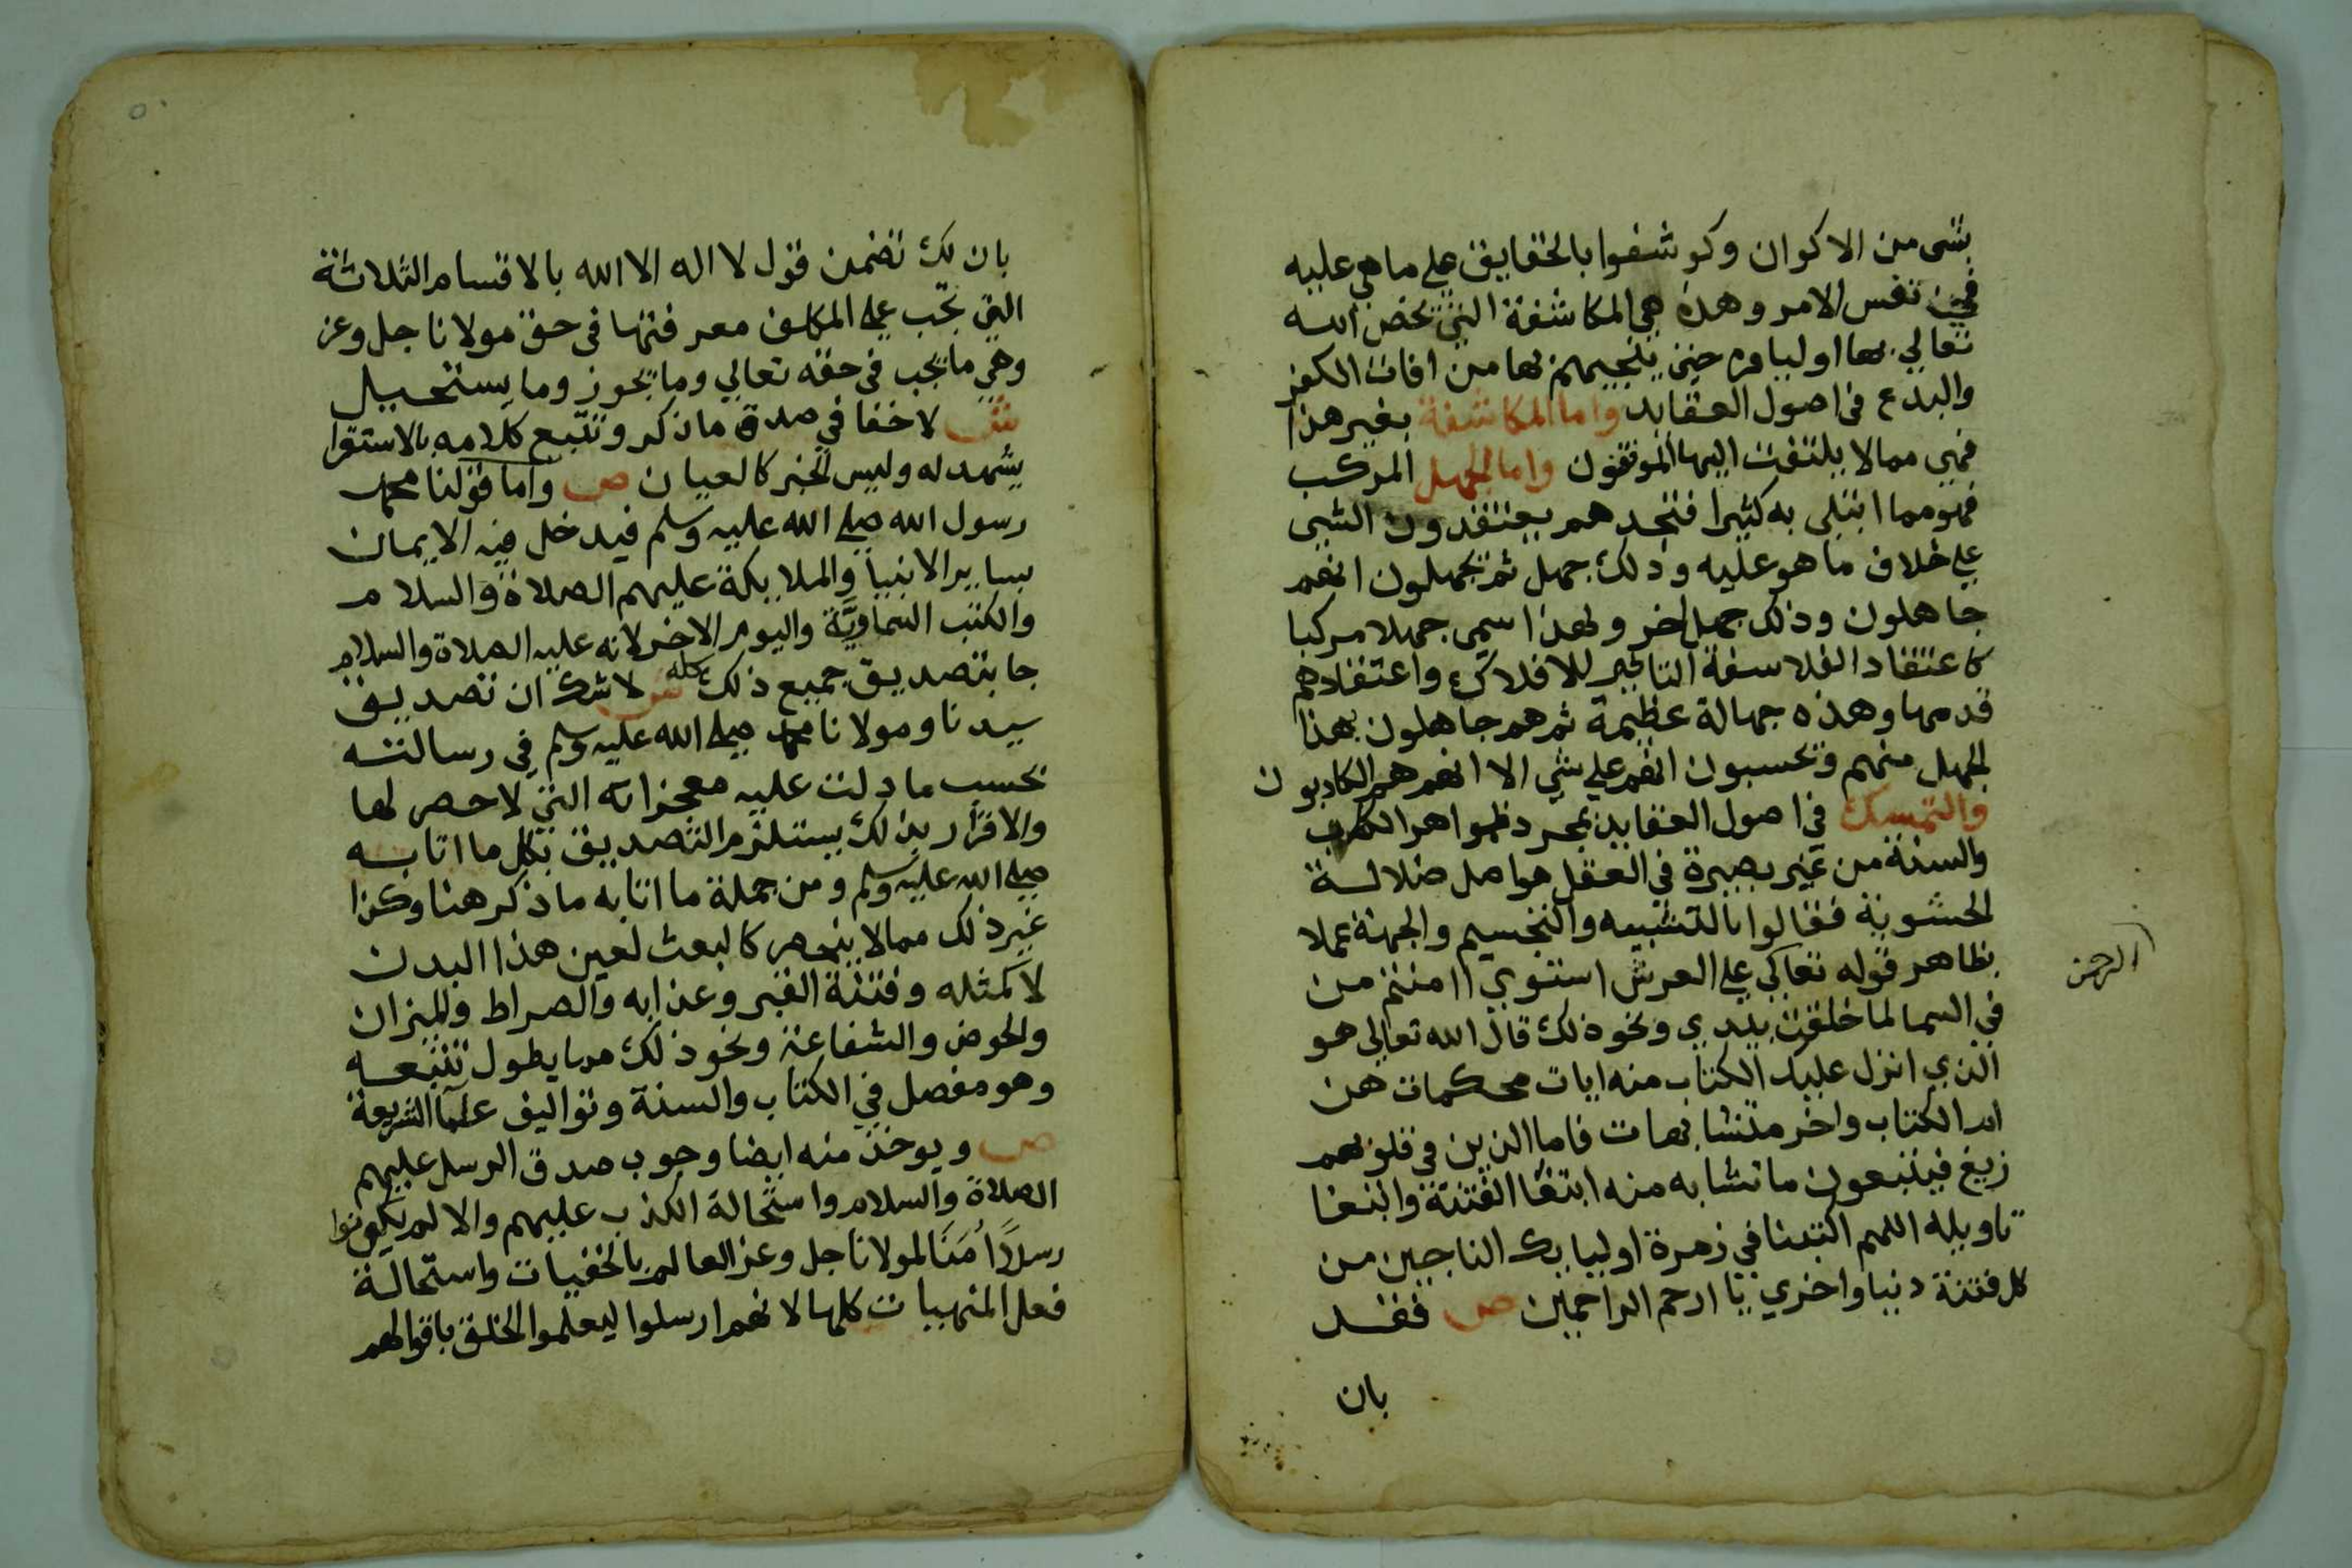 بشى من الاكوان وكوشفوا بالحقايق على ما هي عليه
في نفس الامر وهذه هي المكاشفة التي يخص الله
تعالي بها اولياوه حتى ينجيهم بها من افات الكفر
والبدع فى اصول العقايد واما المكاشفة بغير هذا
فهي مما لا يلتفت اليها الموفقون واما الجهل المركب
فهو مما ابتلى به كثيرا فتجدهم يعتقدون الشي
على خلاف ما هو عليه وذلك جهل ثم يجهلون انهم
جاهلون وذلك جهل اخر ولهذا سمي جهلا مركبا
كاعتقاد الفلاسفة التاثير للافلاك واعتقادهم
قدمها وهذه جهالة عظيمة ثم هم جاهلون بهذا
الجهل منهم ويحسبون انهم على شي الا انهم هم الكاذبون
والتمسك في اصول العقايد بمجرد ظواهر الكتاب
والسنة من غير بصيرة في العقل هو اصل ضلالة
الحشوية فقالوا بالتشبيه والتجسيم والجهة عملا
بظاهر قوله تعالي على العرش استوي اامنتم من
الرحمن
في السما لما خلقت بيدي ونحو ذلك قال الله تعالى هو
الذي انزل عليك الكتاب منه ايات محكمات هن
ام الكتاب واخر متشابهات فاما الذين في قلوبهم
زيغ فيتبعون ما تشابه منه ابتغا الفتنة وابتغا
تاويله اللهم اكتبنا في زمرة اوليايك الناجين من
كل فتنة دنيا واخري يا ارحم الراحمين ص فقد
بان
بان لك تضمن قول لا اله الا الله بالاقسام الثلاثة
التي تجب على المكلف معرفتها فى حق مولانا جل وعز
وهي ما يجب فى حقه تعالي وما يجوز وما يستحيل
ش لا خفا في صدق ما ذكر وتتبع كلامه بالاستقرا
يشهد له وليس الخبر كالعيان ص واما قولنا محمد
رسول الله صلى الله عليه وسلم فيدخل فيه الايمان
بساير الانبيا والملايكة عليهم الصلاة والسلام
والكتب السماوية واليوم الاخر لانه عليه الصلاة والسلام
جا بتصديق جميع ذلك كله ش لا شك ان تصديق
سيدنا ومولانا محمد صلى الله عليه وسلم في رسالته
بحسب ما دلت عليه معجزاته التي لا حصر لها
والاقرار بذلك يستلزم التصديق بكل ما اتا به
صلى الله عليه وسلم ومن جملة ما اتا به ما ذكر هنا وكذا
غير ذلك مما لا ينحصر كالبعث لعين هذا البدن
لا كمثله وفتنة القبر وعذابه والصراط والميزان
والحوض والشفاعة ونحو ذلك مما يطول تتبعه
وهو مفصل في الكتاب والسنة وتواليف علما الشريعة
ص ويوخذ منه ايضا وجوب صدق الرسل عليهم
الصلاة والسلام واستحالة الكذب عليهم والا لم يكونوا
رسلا امنا لمولانا جل وعز العالم بالخفيات واستحالة
فعل المنهيات كلها لانهم ارسلوا ليعلموا الخلق باقوالهم